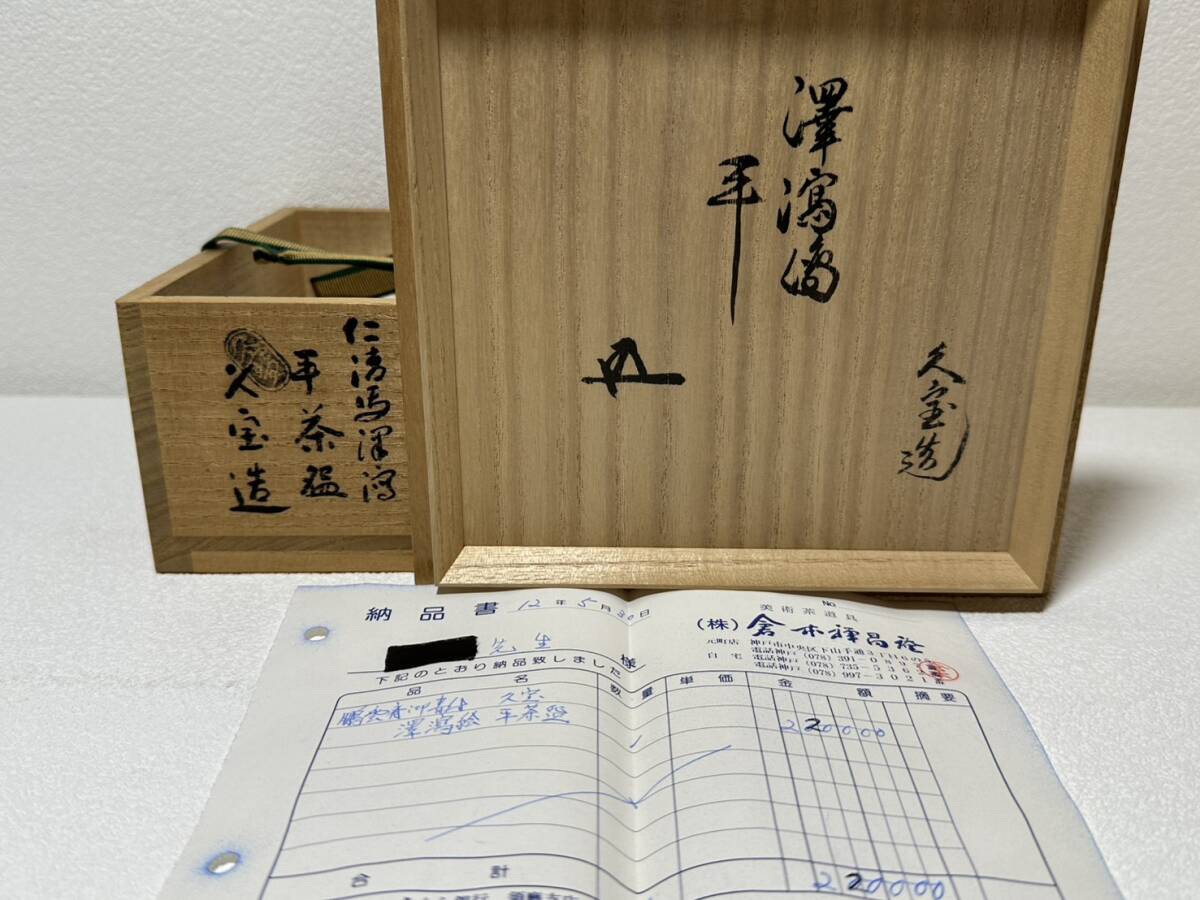 澤瀉繪
平
久宝造
仁清写澤瀉
平茶碗
久宝造
納品書 12年5月30日
No
美術茶道具
(株)
元町店 神戸市中央区下山手通3丁目
電話神戸(078)391-089
自宅 電話神戸(078)735-536
電話神戸(078)997-3021番
先生 様
下記のとおり納品致しました
品名 数量 単価 金額 摘要
鵬雲斎 久宝
澤瀉絵 平茶盌
220000
合計 220000